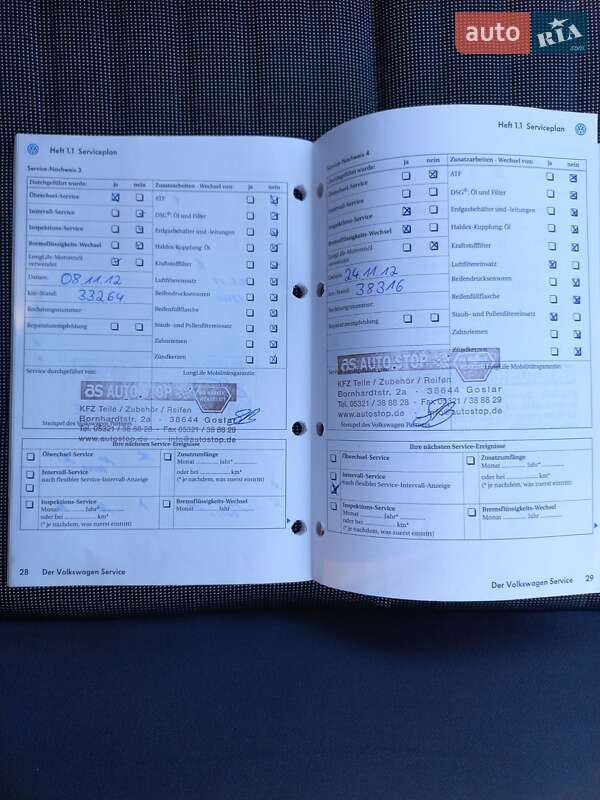 auto RIA .com
Heft 1.1 Serviceplan
Service-Nachweis 3
Durchgeführt wurde: ja nein Zusatzarbeiten - Wechsel von: ja nein
Ölwechsel-Service ATF
Intervall-Service DSG®: Öl und Filter
Inspektions-Service Erdgasbehälter und -leitungen
Bremsflüssigkeits-Wechsel Haldex-Kupplung: Öl
LongLife-Motorenöl verwendet Kraftstofffilter
Datum: 08.11.12 Luftfiltereinsatz
km-Stand: 33264 Reifendrucksensoren
Rechnungsnummer: Reifenfüllflasche
Reparaturempfehlung Staub- und Pollenfiltereinsatz
Zahnriemen
Zündkerzen
Service durchgeführt von: LongLife Mobilitätsgarantie:
as AUTO STOP
KFZ Teile / Zubehör / Reifen
Bornhardtstr. 2a - 38644 Goslar
Tel. 05321 / 38 88 28 - Fax 05321 / 38 88 29
www.autostop.de - info@autostop.de
Stempel des Volkswagen Partners
Ihre nächsten Service-Ereignisse
Ölwechsel-Service Zusatzumfänge
Monat Jahr*
Intervall-Service oder bei km*
nach flexibler Service-Intervall-Anzeige (* je nachdem, was zuerst eintritt)
Inspektions-Service Bremsflüssigkeits-Wechsel
Monat Jahr* Monat Jahr
oder bei km*
(* je nachdem, was zuerst eintritt)
28 Der Volkswagen Service
Heft 1.1 Serviceplan
Service-Nachweis 4
Durchgeführt wurde: ja nein Zusatzarbeiten - Wechsel von: ja nein
Ölwechsel-Service ATF
Intervall-Service DSG®: Öl und Filter
Inspektions-Service Erdgasbehälter und -leitungen
Bremsflüssigkeits-Wechsel Haldex-Kupplung: Öl
LongLife-Motorenöl verwendet Kraftstofffilter
Datum: 24.11.12 Luftfiltereinsatz
km-Stand: 38316 Reifendrucksensoren
Rechnungsnummer: Reifenfüllflasche
Reparaturempfehlung Staub- und Pollenfiltereinsatz
Zahnriemen
Zündkerzen
Service durchgeführt von: LongLife Mobilitätsgarantie:
as AUTO STOP
KFZ Teile / Zubehör / Reifen
Bornhardtstr. 2a - 38644 Goslar
Tel. 05321 / 38 88 28 - Fax 05321 / 38 88 29
www.autostop.de - info@autostop.de
Stempel des Volkswagen Partners
Ihre nächsten Service-Ereignisse
Ölwechsel-Service Zusatzumfänge
Monat Jahr*
Intervall-Service oder bei km*
nach flexibler Service-Intervall-Anzeige (* je nachdem, was zuerst eintritt)
Inspektions-Service Bremsflüssigkeits-Wechsel
Monat Jahr* Monat Jahr
oder bei km*
(* je nachdem, was zuerst eintritt)
Der Volkswagen Service 29